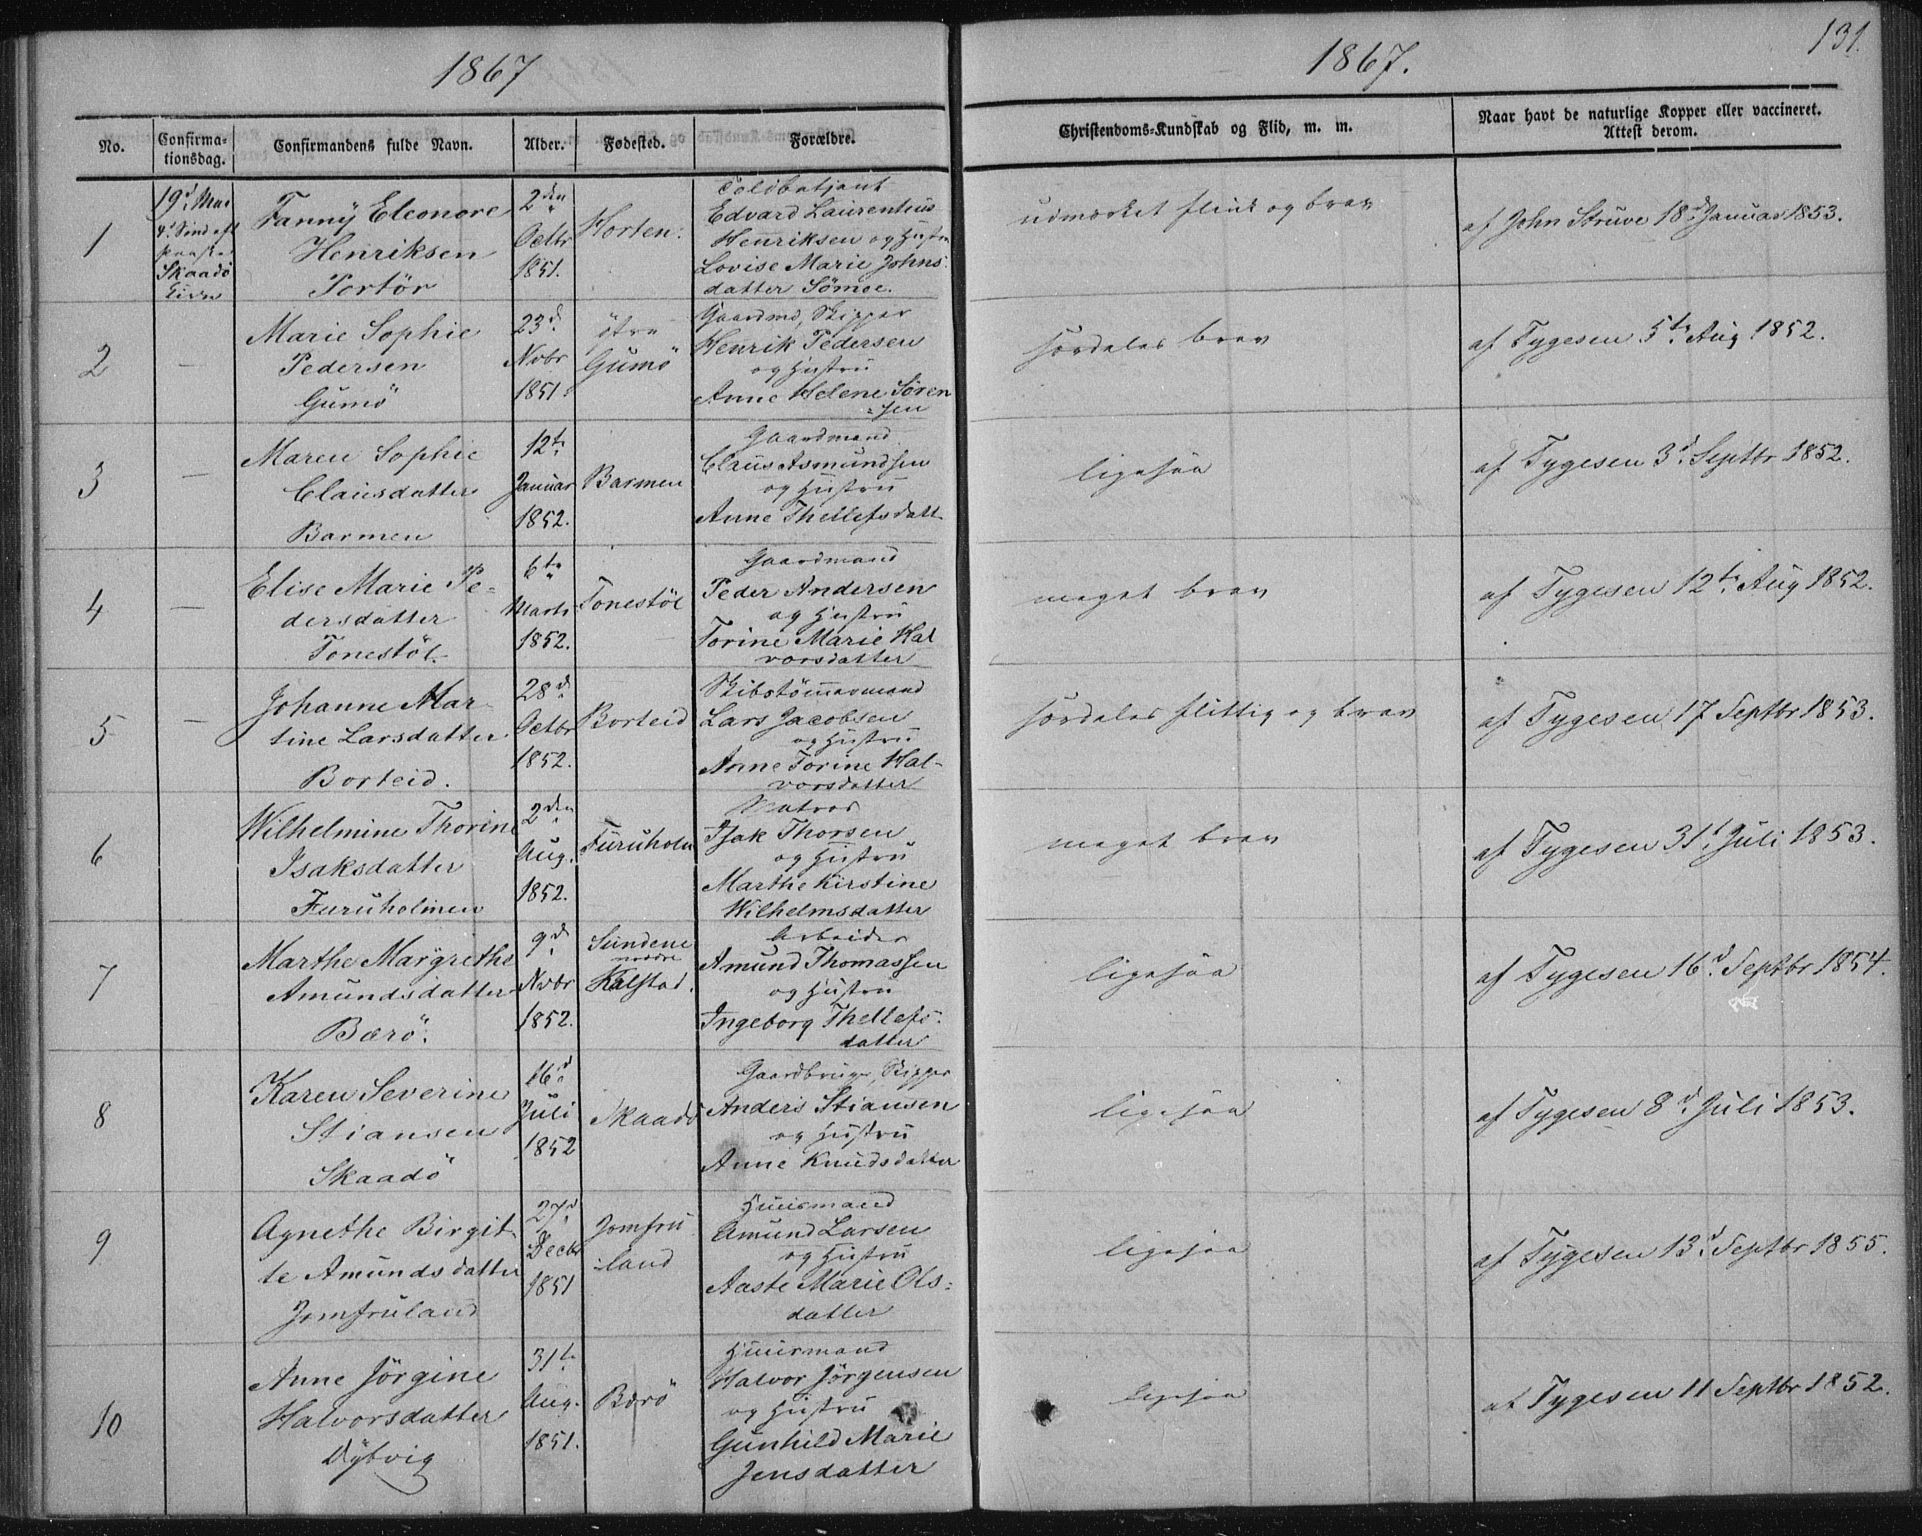 1867
1867.
131.
No.
Confirma-
tionsdag.
Confirmandens fulde Navn.
Alder.
Fødested.
Forældre.
Christendoms-Kundskab og Flid, m. m.
Naar havt de naturlige Kopper eller vaccineret.
Attest derom.
1
19d Mai
4d Sønd eft
paaske
Skaadö
Fanny Eleonore
Henriksen
Portör
2den
Octbr
1851.
Horten.
Toldbetjent
Edvard Laurentius
Henriksen og Hustru
Lovise Marie Johns-
datter Sömoe.
udmærket flink og brav
af John Struve 18d Januar 1853.
2
—
Marie Sophie
Pedersen
Gumö
23d
Nvbr
1851.
östre
Gumö
Gaardmd, Skipper
Henrik Pedersen
og Hustru
Anne Helene Sören
=sen
særdeles brav
af Tygesen 5te Aug 1852.
3
—
Maren Sophie
Clausdatter
Barmen
12te
Januar
1852.
Barmen
Gaardmand
Claus Asmundsen
og Hustru
Anne Thellefsdatt
ligesaa
af Tygesen 3d Septbr 1852.
4
—
Elise Marie Pe-
dersdatter
Tonestöl
6te
Marts
1852.
Tonestöl
Gaardmand
Peder Andersen
og Hustru
Torine Marie Hal
vorsdatter
meget brav
af Tygesen 12te Aug 1852.
5
—
Johanne Mar-
tine Larsdatter
Borteid.
28d
Octbr
1852.
Borteid
Skibstömmermand
Lars Jacobsen
og Hustru
Anne Torine Hal-
vorsdatter
særdeles flittig og brav
af Tygesen 17 Septbr 1853.
6
Wilhelmine Thorine
Isaksdatter
Furuholmen
2den
Aug.
1852.
Furuholm
Matros
Isak Thorsen
og Hustru
Marthe Kirstine
Wilhelmsdatter
meget brav
af Tygesen 31t Juli 1853.
7
Marthe Margrethe
Amundsdatter
Bærö.
9d
Nvbr
1852.
Sundene
nordre
Kalstad.
Arbeider
Amund Thomassen
og Hustru
Ingeborg Thellefs-
datter
ligesaa
af Tygesen 16d Septbr 1854.
8
Karen Severine
Stiansen
Skaadö
16d
Juli
1852
Skaadö
Gaardbruger, Skipper
Anders Stiansen
og Hustru
Anne Knudsdatter
ligesaa
af Tygesen 8d Juli 1853.
9
Agnethe Birgit-
te Amundsdatter
Jomfruland
27d
Decbr
1851
Jomfru
=land
Huusmand
Amund Larsen
og Hustru
Aaste Marie Ols=
datter
ligesaa
af Tygesen 13d Septbr 1855.
10
Anne Jörgine
Halvorsdatter
Dybvig
31te
Aug.
1851.
Bærö
Huusmand
Halvor Jörgensen
og Hustru
Gunhild Marie
Jensdatter
ligesaa
af Tygesen 11 Septbr 1852.